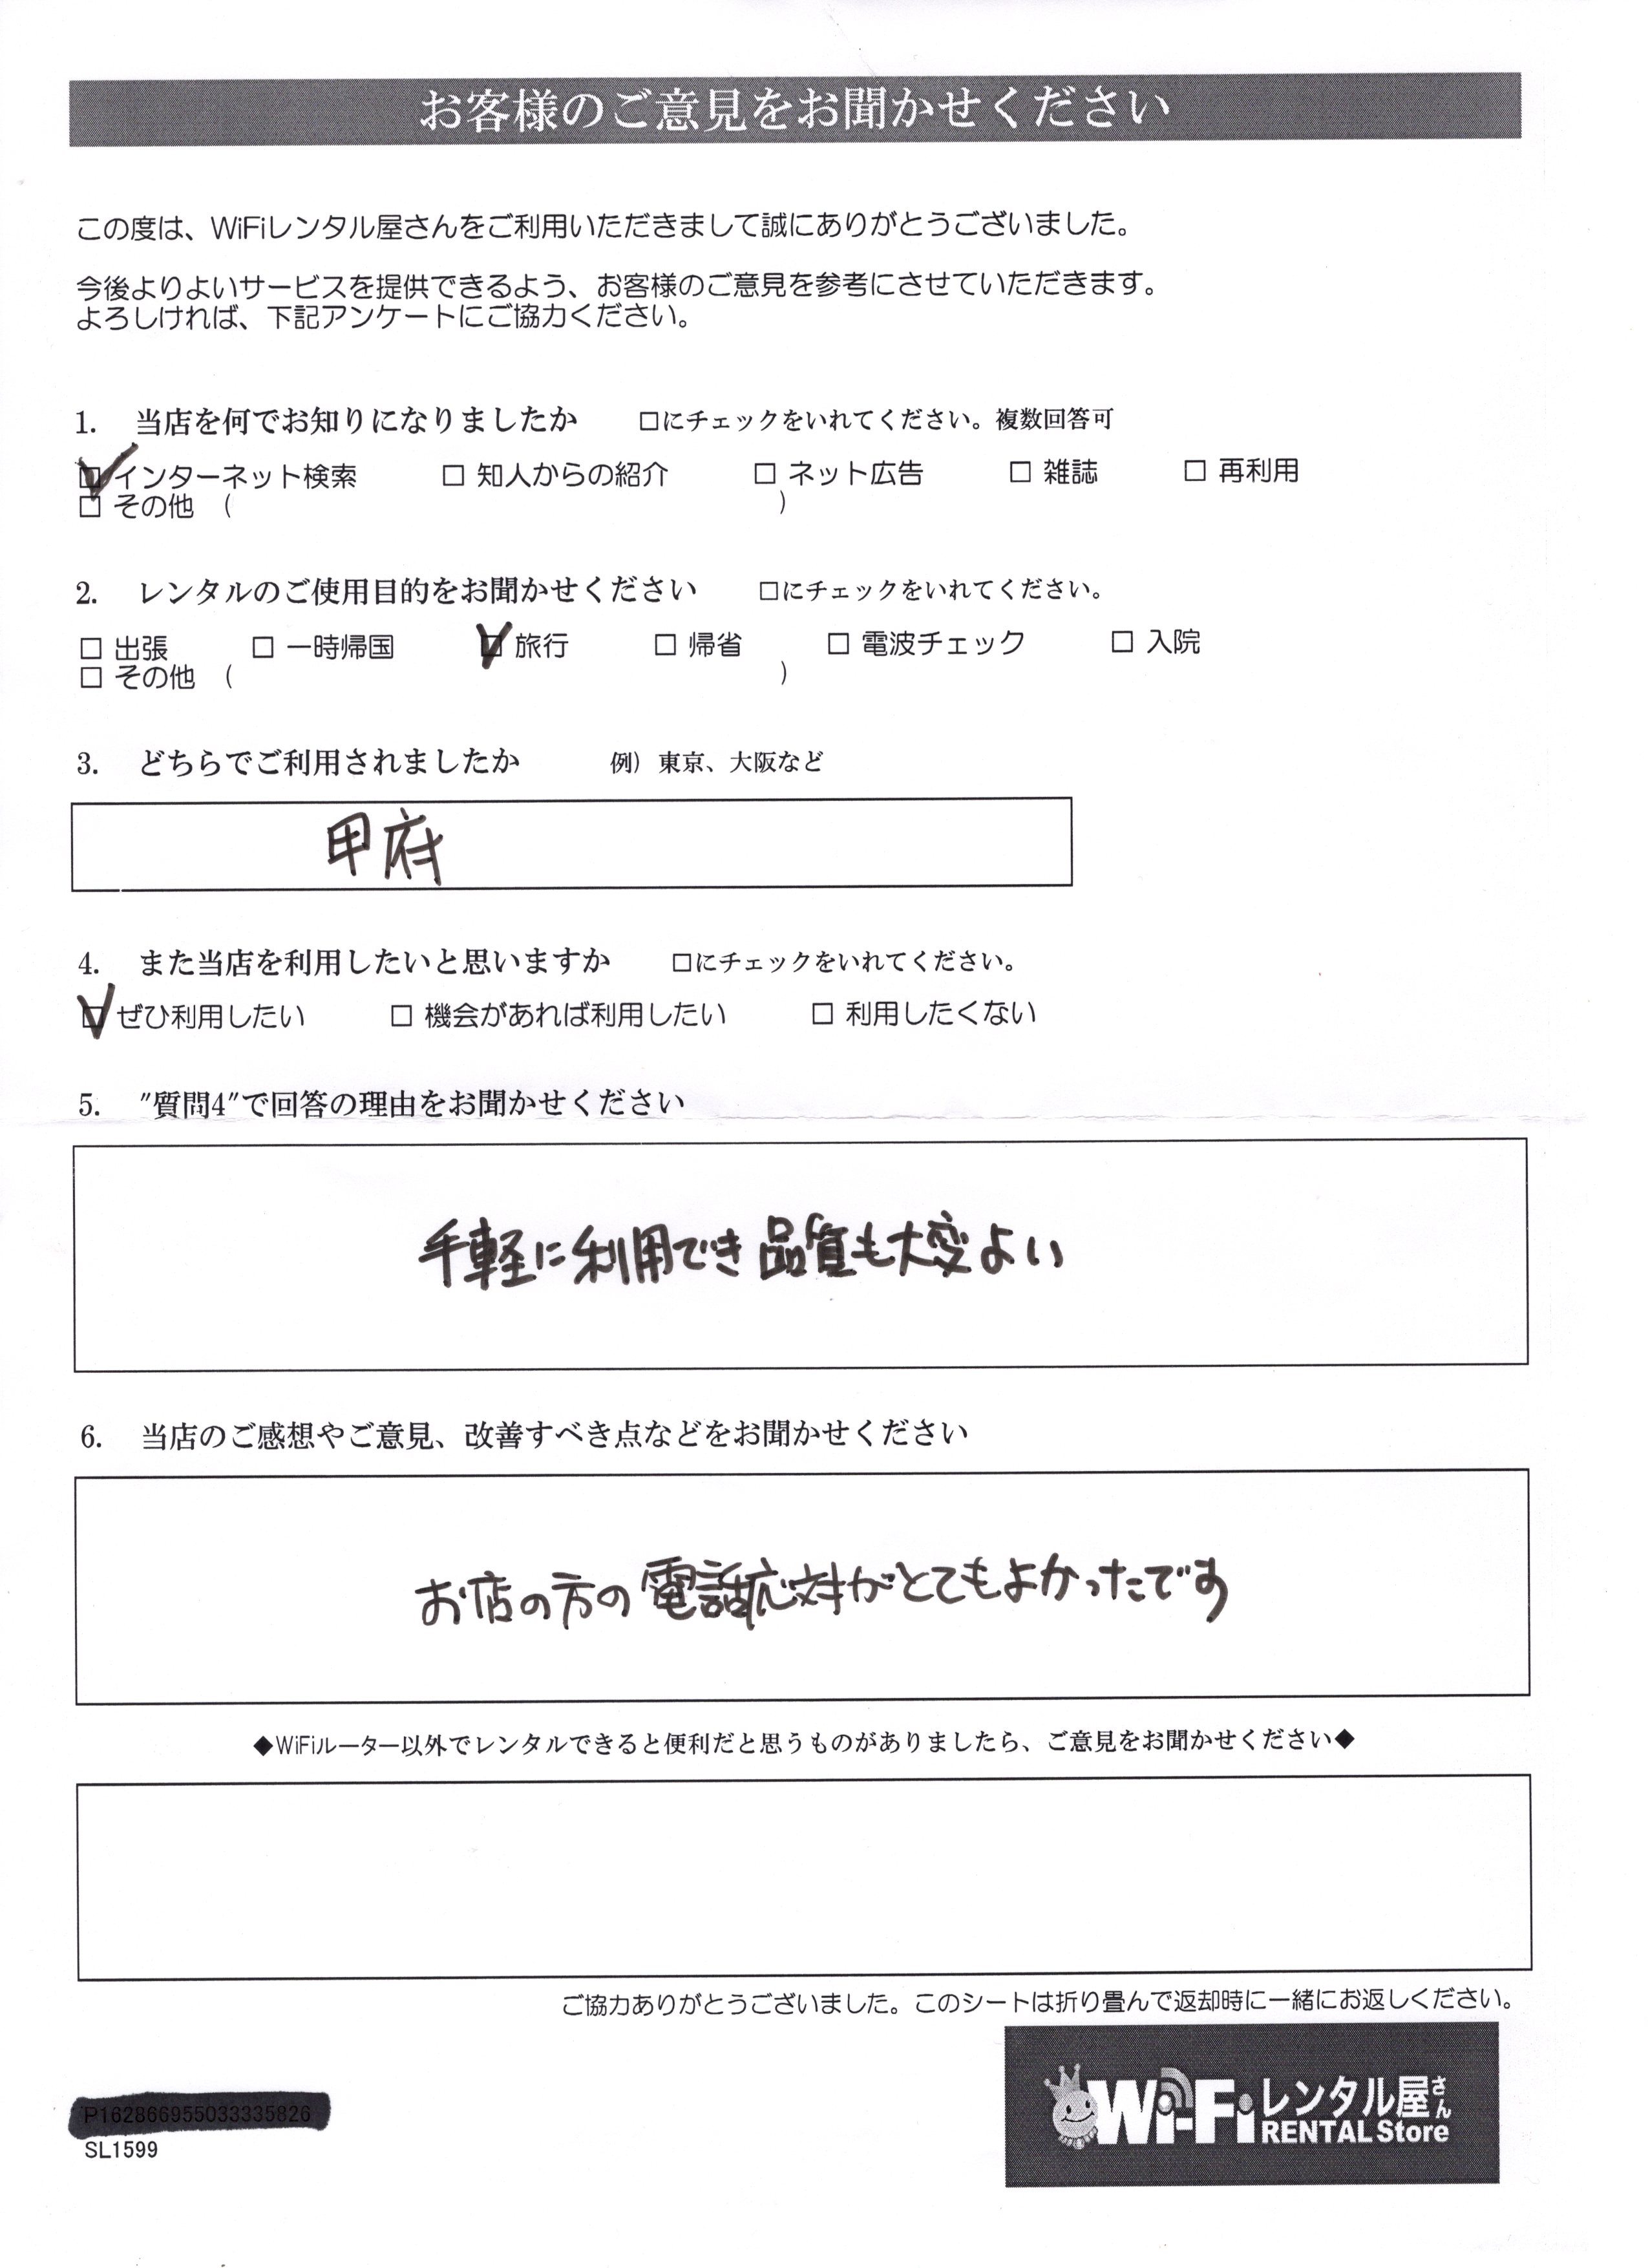 お客様のご意見をお聞かせください
この度は、WiFiレンタル屋さんをご利用いただきまして誠にありがとうございました。
今後よりよいサービスを提供できるよう、お客様のご意見を参考にさせていただきます。
よろしければ、下記アンケートにご協力ください。
1. 当店を何でお知りになりましたか □にチェックをいれてください。複数回答可
☑ インターネット検索 □ 知人からの紹介 □ ネット広告 □ 雑誌 □ 再利用
□ その他 ( )
2. レンタルのご使用目的をお聞かせください □にチェックをいれてください。
□ 出張 □ 一時帰国 ☑ 旅行 □ 帰省 □ 電波チェック □ 入院
□ その他 ( )
3. どちらでご利用されましたか 例）東京、大阪など
甲府
4. また当店を利用したいと思いますか □にチェックをいれてください。
☑ ぜひ利用したい □ 機会があれば利用したい □ 利用したくない
5. "質問4"で回答の理由をお聞かせください
手軽に利用でき品質も大変よい
6. 当店のご感想やご意見、改善すべき点などをお聞かせください
お店の方の電話応対がとてもよかったです
◆WiFiルーター以外でレンタルできると便利だと思うものがありましたら、ご意見をお聞かせください◆
ご協力ありがとうございました。このシートは折り畳んで返却時に一緒にお返しください。
P162866955033335826
SL1599
Wi-Fiレンタル屋さん
RENTAL Store